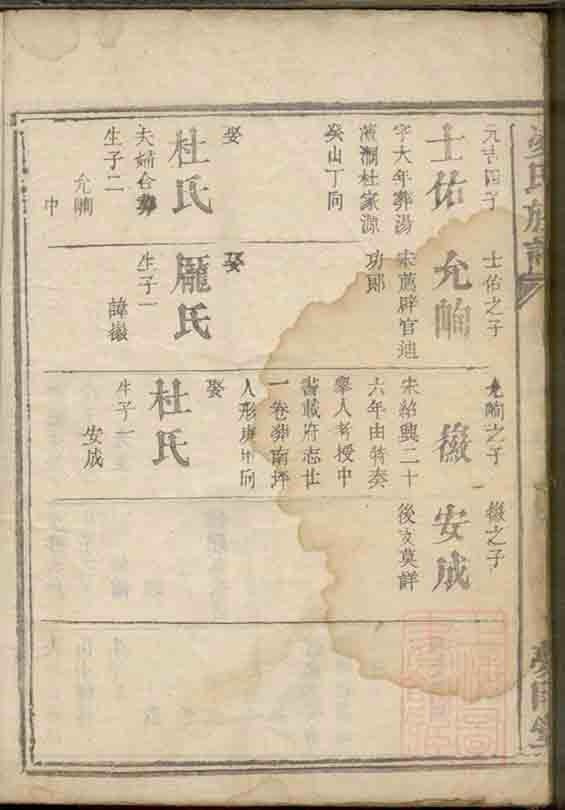 士佑
字大年葬湯
杜家源
癸山丁向
娶
杜氏
夫婦合葬
生子二
允㫬
中
士佑之子
允㫬
宋薦辟官迪
功郎
娶
龎氏
生子一
諱徽
允㫬之子
宋紹興二十
六年由特奏
舉人
授中
書載府志廿
一卷葬南坪
人形庚甲向
娶
杜氏
生子一
安成
之子
安成
後文莫詳